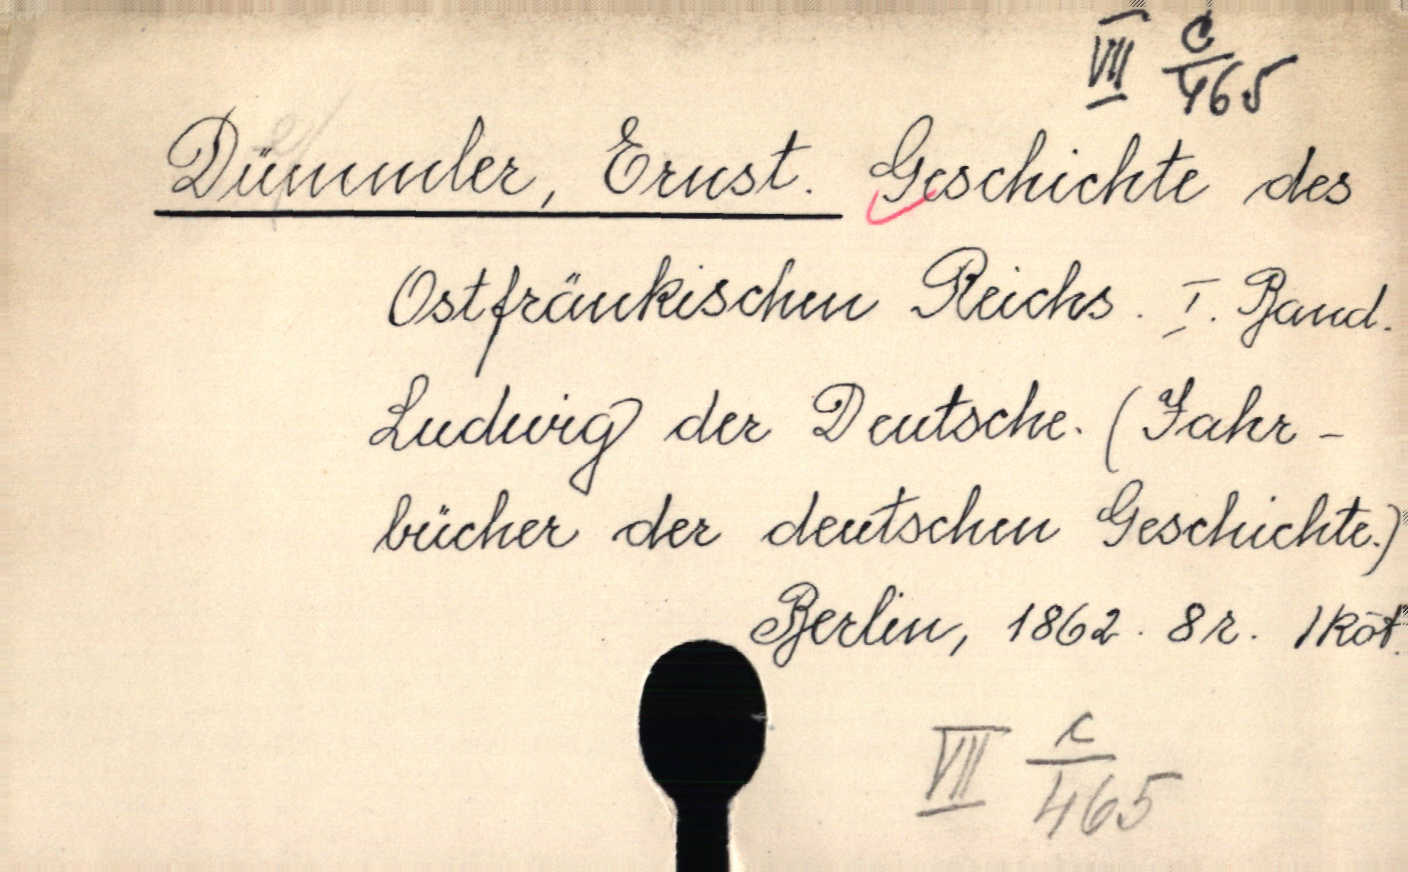 VII c/465
Dümmler, Ernst. Geschichte des
Ostfränkischen Reichs. I. Band.
Ludwig der Deutsche. (Jahr-
bücher der deutschen Geschichte.)
Berlin, 1862. 8r. 1 köt.
VII c/465